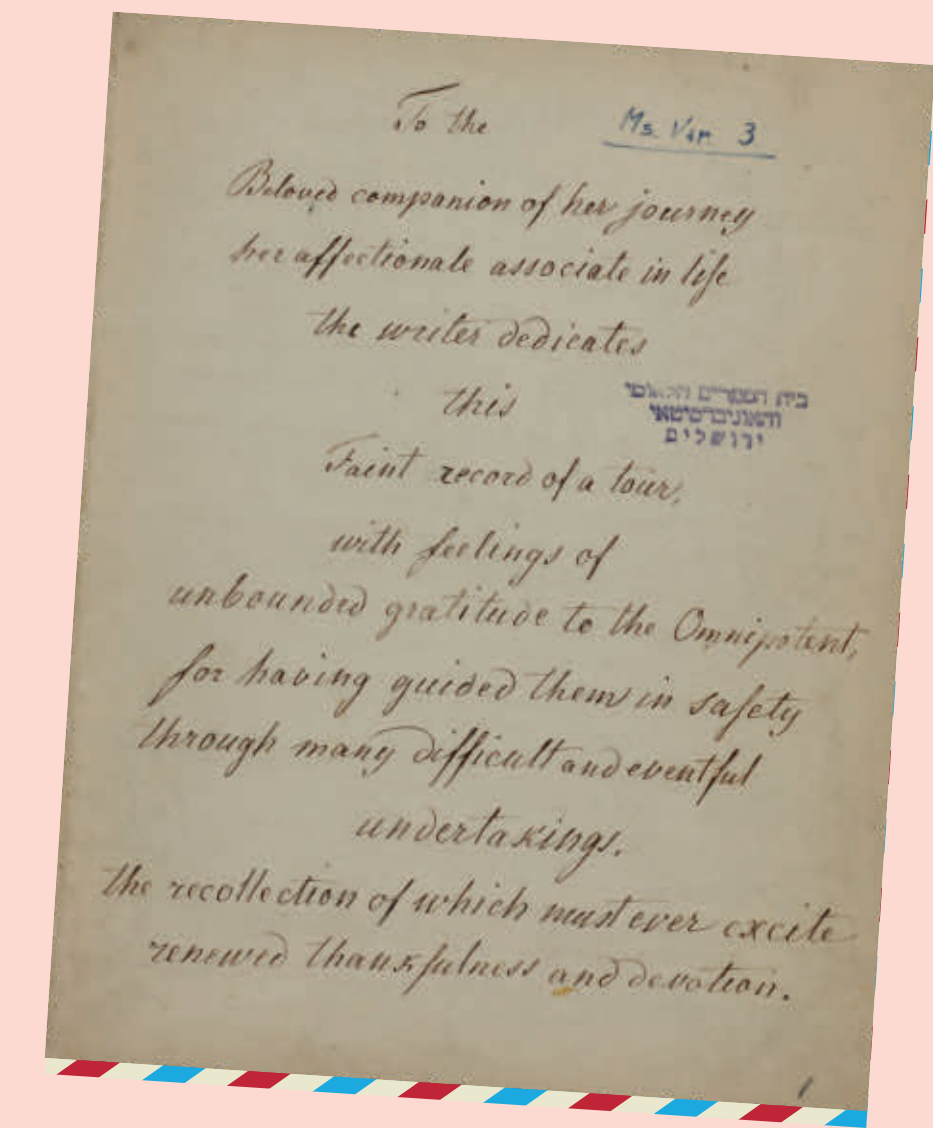 To the
Ms. Var. 3
Beloved companion of her journey
her affectionate associate in life
the writer dedicates
this
בית הספרים הלאומי
והאוניברסיטאי
ירושלים
Faint record of a tour,
with feelings of
unbounded gratitude to the Omnipotent,
for having guided them in safety
through many difficult and eventful
undertakings.
the recollection of which must ever excite
renewed thankfulness and devotion.
1